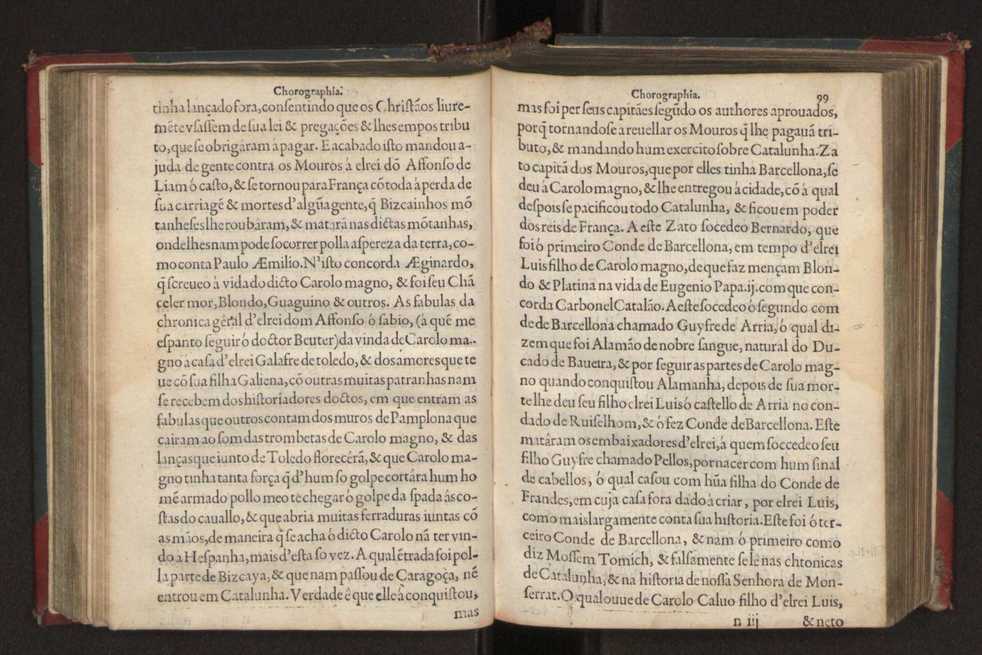 Chorographia.
tinha lançado fora, consentindo que os Christãos liure-
mẽte vsassẽm de sua lei & pregações & lhes empos tribu
to, que se obrigaram a pagar. E acabado isto mandou a-
juda de gente contra os Mouros à elrei dõ Affonso de
Liam ó casto, & se tornou para França cõ toda à perda de
sua carriagẽ & mortes d'algũa gente, q̃ Bizcainhos mõ
tanheses lhe roubàram, & matarã nas dictas mõtanhas,
onde lhes nam pode socorrer polla aspereza da terra, co-
mo conta Paulo Æmilio. N'isto concorda Æginardo,
q̃ screueo à vida do dicto Carolo magno, & foi seu Chã
çeler mor, Blondo, Guaguino & outros. As fabulas da
chronica gèral d'elrei dom Affonso ó sabio, (à quẽ me
espanto seguir ó doctor Beuter) da vinda de Carolo ma-
gno à casa d'elrei Galafre de toledo, & dos amores que te
ue cõ sua filha Galiena, cõ outras muitas patranhas nam
se recebem dos historiadores doctos, em que entram as
fabulas que outros contam dos muros de Pamplona que
cairam ao som das trombetas de Carolo magno, & das
lanças que iunto de Toledo florecérã, & que Carolo ma-
gno tinha tanta força q̃ d'hum so golpe cortára hum ho
mẽ armado pollo meo te chegar ó golpe da spada ás co-
stas do cauallo, & que abria muitas ferraduras iuntas cõ
as mãos, de maneira q̃ se acha ó dicto Carolo nã ter vin-
do a Hespanha, mais d'esta so vez. A qual ẽtrada foi pol-
la parte de Bizcaya, & que nam passou de Çaragoça, nẽ
entrou em Catalunha. Verdade é que elle à conquistou,
mas
Chorographia. 99
mas foi per seus capitães segũdo os authores aprouados,
porq̃ tornandose a reuellar os Mouros q̃ lhe pagauã tri-
buto, & mandando hum exercito sobre Catalunha. Za
to capitã dos Mouros, que por elles tinha Barcellona, se
deu à Carolo magno, & lhe entregou à cidade, cõ à qual
despois se pacificou todo Catalunha, & ficou em poder
dos reis de França. A este Zato socedeo Bernardo, que
foi ó primeiro Conde de Barcellona, em tempo d'elrei
Luis filho de Carolo magno, de que faz mençam Blon-
do & Platina na vida de Eugenio Papa.ij. com que con-
corda Carbonel Catalão. A este socedeo ó segundo com
de de Barcellona chamado Guyfre de Arria, ó qual di-
zem que foi Alamão de nobre sangue, natural do Du-
cado de Baueira, & por seguir as partes de Carolo mag-
no quando conquistou Alamanha, depois de sua mor-
te lhe deu seu filho elrei Luis ó castello de Arria no con-
dado de Ruiselhom, & ó fez Conde de Barcellona. Este
matàram os embaixadores d'elrei, à quem soccedeo seu
filho Guyfre chamado Pellos, por nacer com hum sinal
de cabellos, ó qual casou com hũa filha do Conde de
Frandes, em cuja casa fora dado à criar, por elrei Luis,
como mais largamente conta sua historia. Este foi ó ter-
ceiro Conde de Barcellona, & nam ó primeiro como
diz Mossẽm Tomich, & falsamente se lè nas chronicas
de Catalunha, & na historia de nossa Senhora de Mon-
serrat. O qual ouue de Carolo Caluo filho d'elrei Luis,
n iij & neto